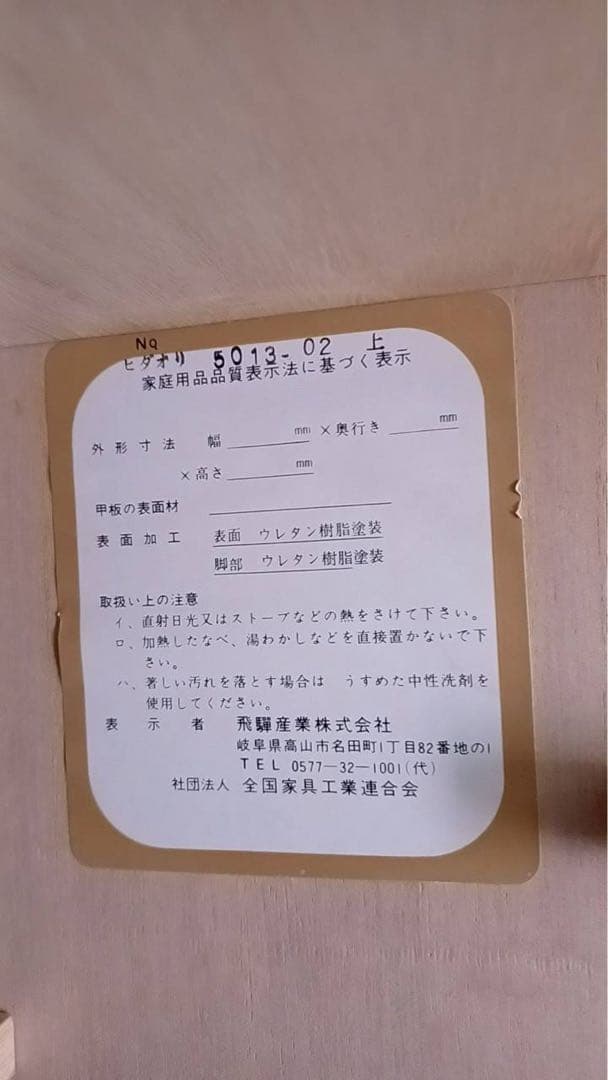 No
ヒダオリ 5013-02 上
家庭用品品質表示法に基づく表示
外形寸法 幅 mm ×奥行き mm
×高さ mm
甲板の表面材
表面加工 表面 ウレタン樹脂塗装
脚部 ウレタン樹脂塗装
取扱い上の注意
イ、直射日光又はストーブなどの熱をさけて下さい。
ロ、加熱したなべ、湯わかしなどを直接置かないで下
さい。
ハ、著しい汚れを落とす場合は うすめた中性洗剤を
使用してください。
表示者 飛驒産業株式会社
岐阜県高山市名田町1丁目82番地の1
TEL 0577-32-1001(代)
社団法人 全国家具工業連合会